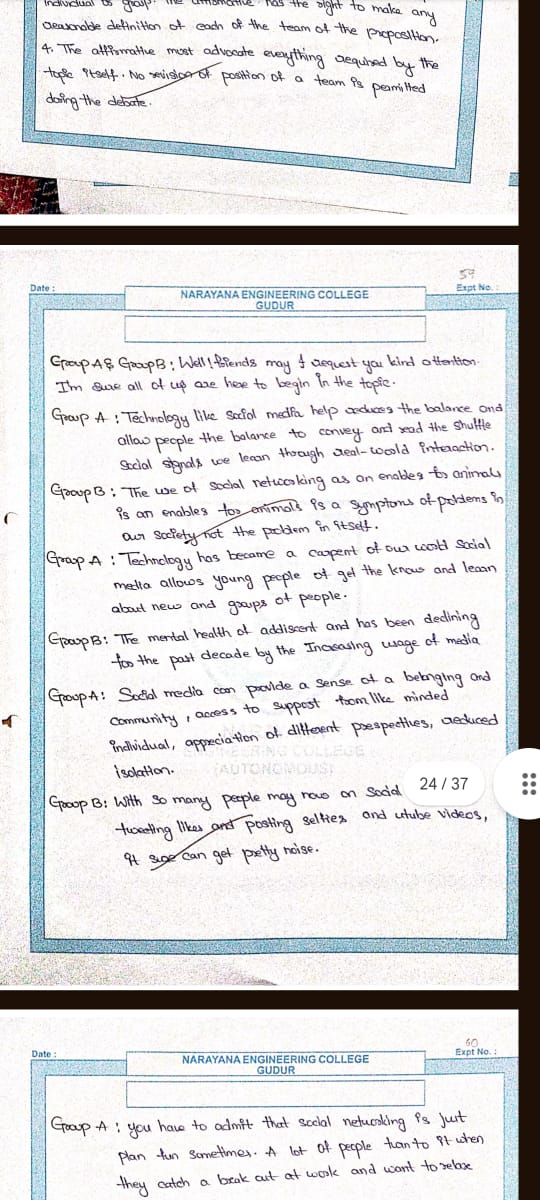 individual or group. The affirmative has the right to make any
reasonable definition of each of the team of the proposition.
4. The affirmative must advocate everything required by the
topic itself. No revision of position of a team is permitted
doing the debate.
59
Date :
Expt No. :
NARAYANA ENGINEERING COLLEGE
GUDUR
Group A & Group B : Well! friends may I request you kind attention.
I'm sure all of us are here to begin in the topic.
Group A : Technology like social media help reduces the balance and
allow people the balance to convey and read the shuttle
social signals we lean through real-world interaction.
Group B : The use of social networking as an enables to animals
is an enables too animals is a symptoms of problems in
our society not the problem in itself.
Group A : Technology has became a carpent of our world social
media allows young people of get the know and lean
about new and groups of people.
Group B : The mental health of addiscent and has been declining
for the past decade by the Increasing usage of media
Group A : Social media can provide a sense of a belonging and
community, access to suppost from like minded
individual, appreciation of different prespectives, reduced
isolation.
ENGINEERING COLLEGE
(AUTONOMOUS)
Group B : With so many people may now on social
24 / 37
tweeting likes and posting selfies and utube videos,
It sure can get pretty noise.
60
Date :
Expt No. :
NARAYANA ENGINEERING COLLEGE
GUDUR
Group A : you have to admit that social networking is just
plan fun sometimes. A lot of people it when
they catch a break out at work and want to relax